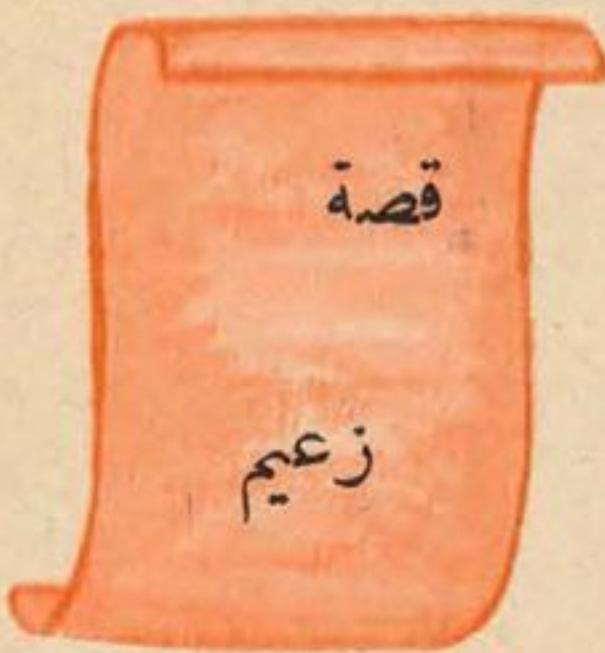 قصة
زعيم